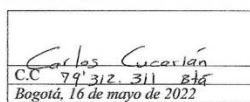 Carlos Cucarián
C.C 79'312.311 Btá
Bogotá, 16 de mayo de 2022